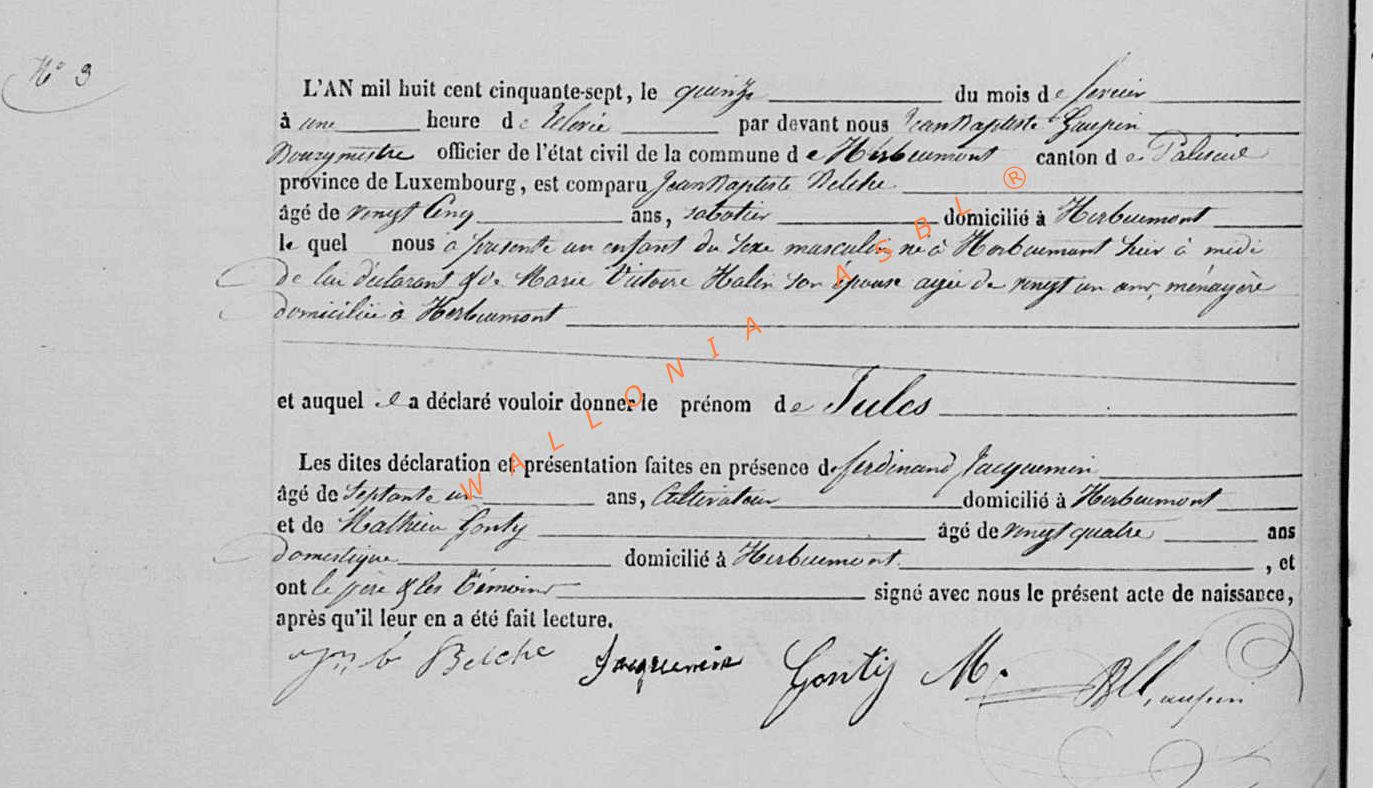 N° 9
L'AN mil huit cent cinquante-sept, le quinze du mois de fevrier
à une heure de relevée par devant nous Jean Baptiste Gaupin
Bourgmestre officier de l'état civil de la commune de Herbeumont canton de Paliseul
province de Luxembourg, est comparu Jean Baptiste Belche
âgé de vingt Cinq ans, sabotier domicilié à Herbeumont
le quel nous a presenté un enfant du sexe masculin né à Herbeumont hier à midi
de lui déclarant & de Marie Victoire Halin son épouse agée de vingt un ans, ménagère
domiciliée à Herbeumont
et auquel il a déclaré vouloir donner le prénom de Jules
Les dites déclaration et présentation faites en présence de ferdinand Jacquemin
âgé de Septante un ans, Cultivateur domicilié à Herbeumont
et de Mathieu Gonty âgé de vingt quatre ans
domestique domicilié à Herbeumont , et
ont le père & les témoins signé avec nous le présent acte de naissance,
après qu'il leur en a été fait lecture.
Belche Jacquemin Gonty M. Gaupin
WALLONIA ASBL ®